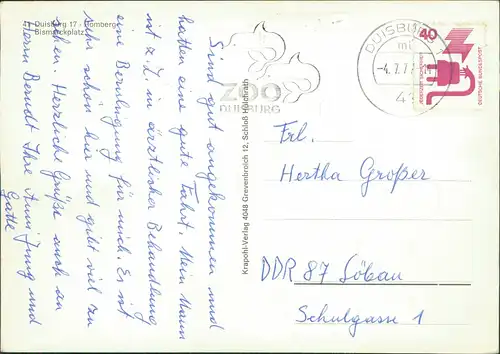 41 Duisburg 17 - Homberg
Bismarckplatz
Sind gut angekommen und
hatten eine gute Fahrt. Mein Mann
ist z. Z. in ärztlicher Behandlung
eine Beruhigung für mich. Es ist
sehr schön hier und gibt viel zu
sehen. Herzliche Grüße auch an
Herrn Berndt Ihre Anni Jung und
Gatte
Krapohl-Verlag 4048 Grevenbroich 12, Schloß Hülchrath
ZOO
DUISBURG
DUISBURG
40
DEUTSCHE BUNDESPOST
Frl.
Hertha Großer
DDR 87 Löbau
Schulgasse 1